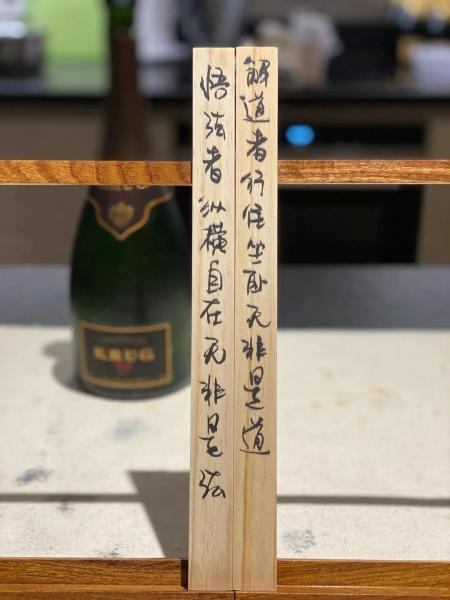 解道者行住坐卧无非是道
悟法者纵横自在无非是法
KRUG
KRUG